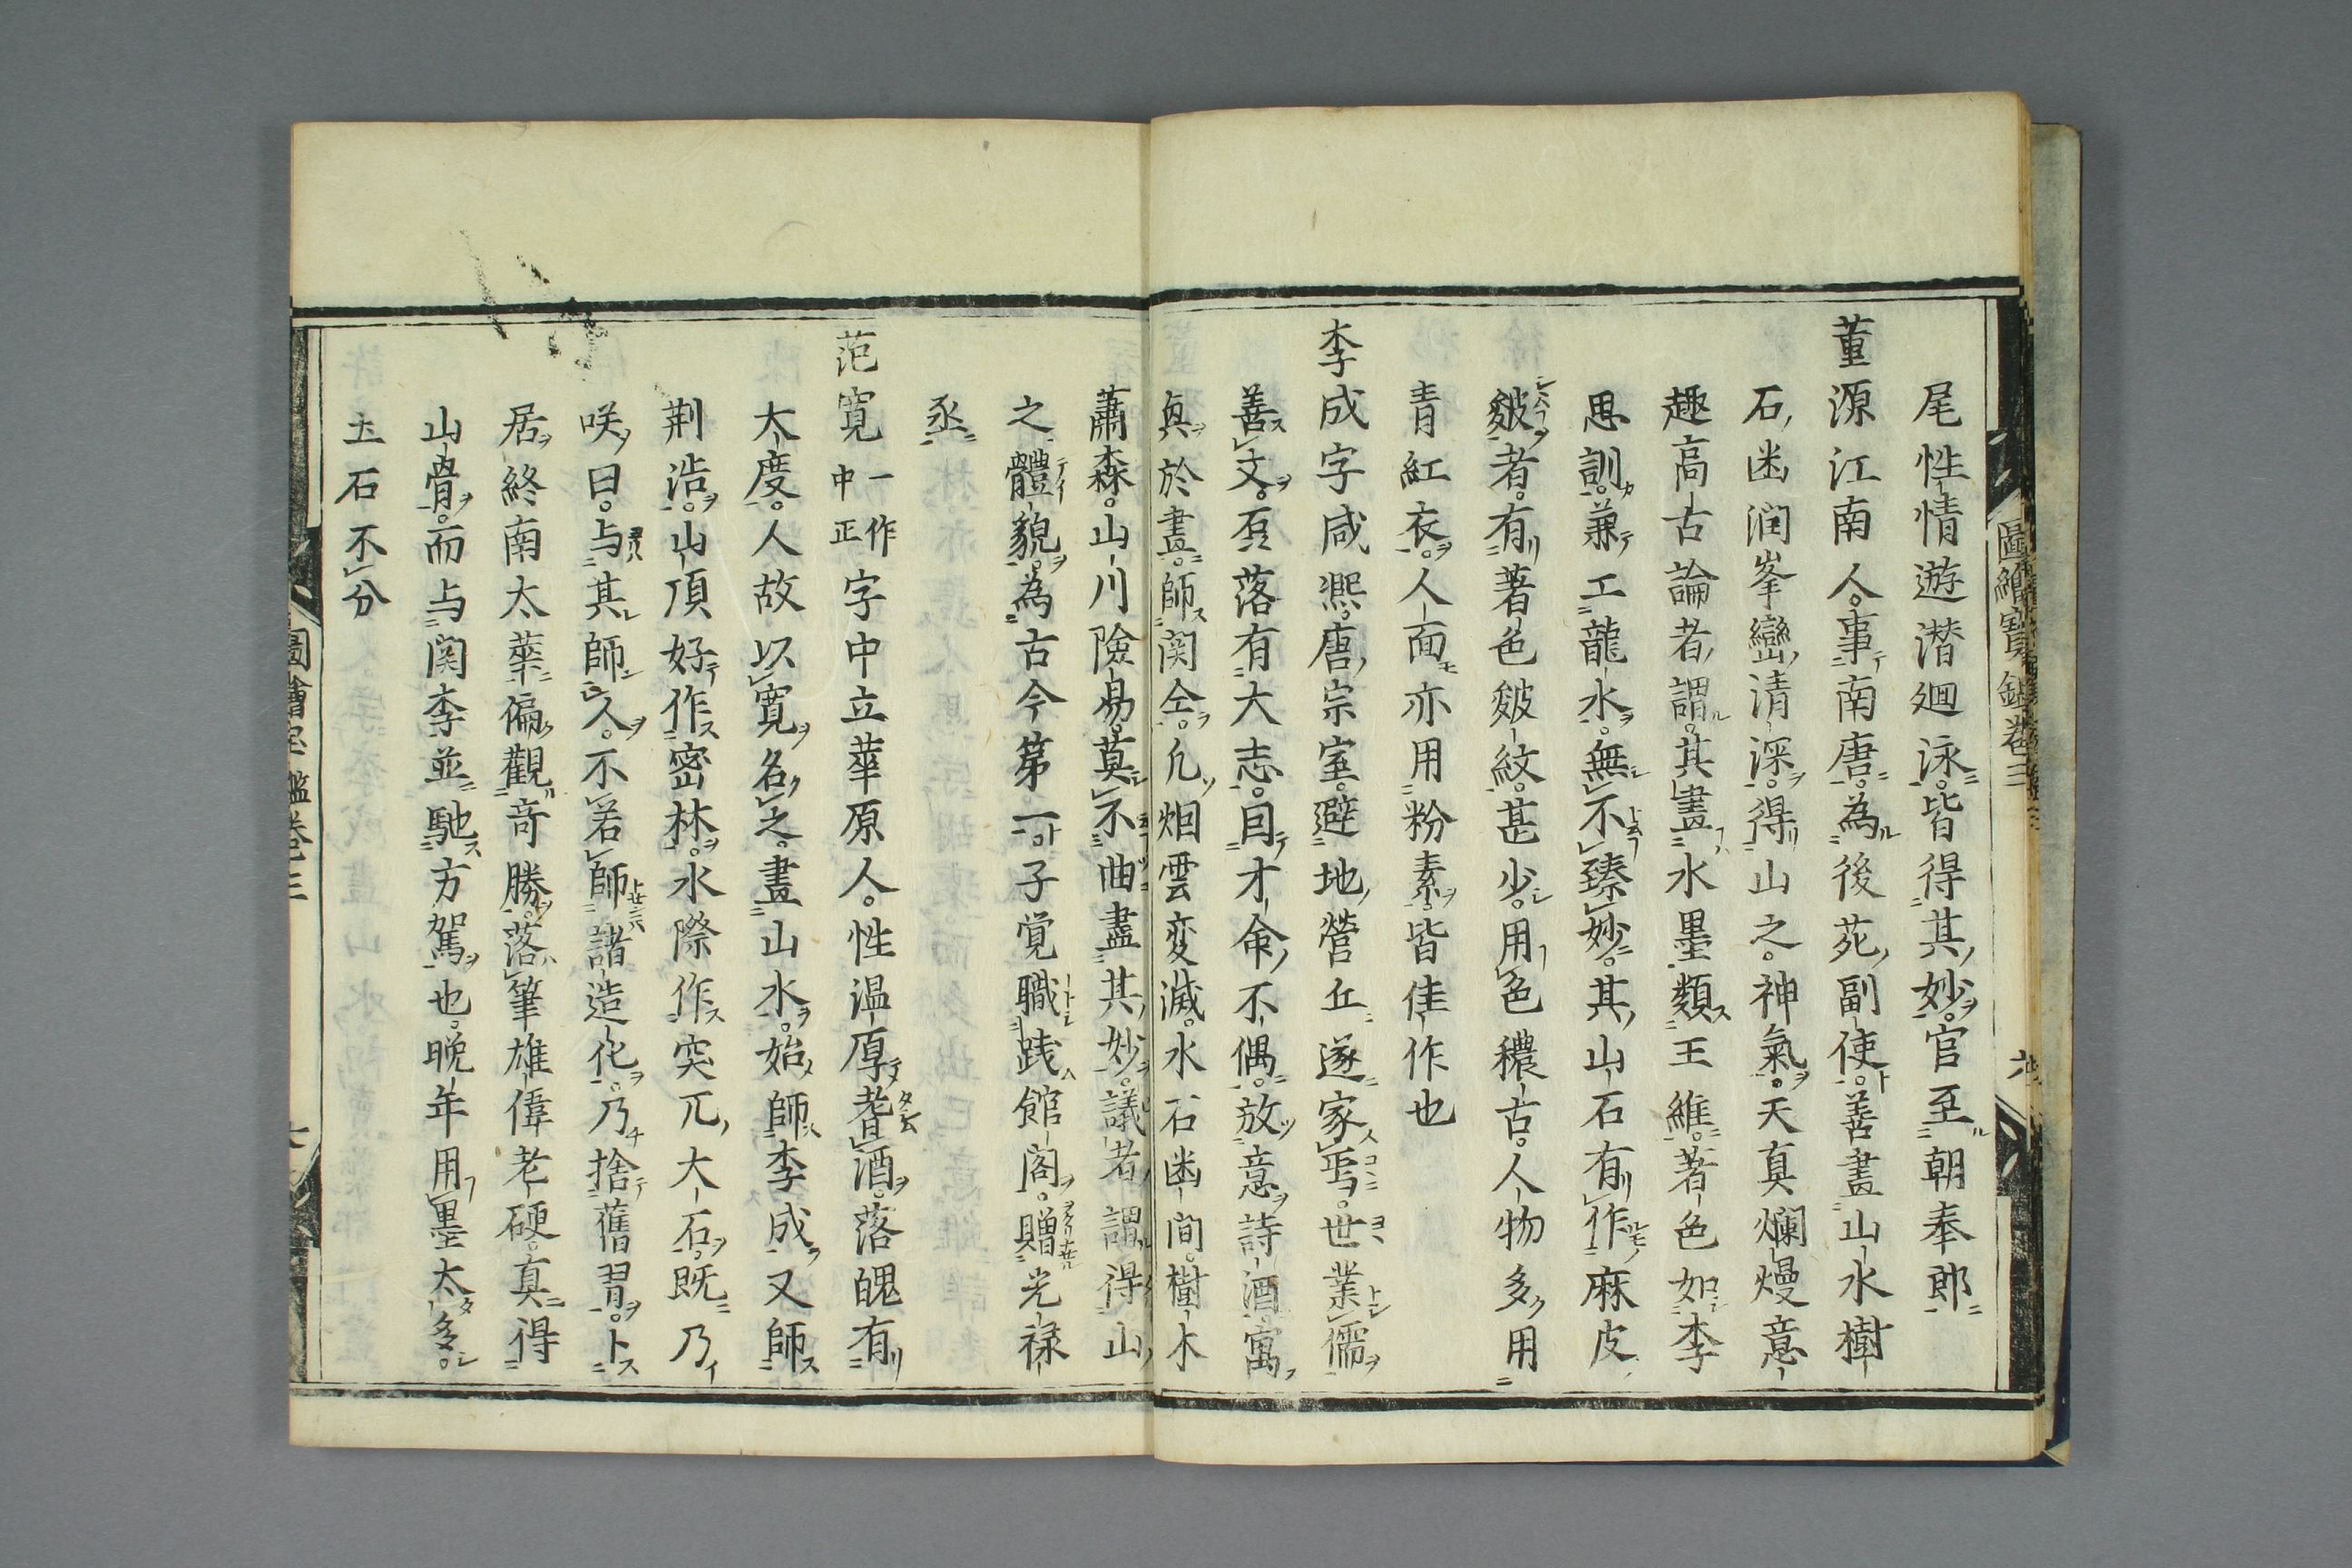 圖繪寶鑑卷三
尾性情遊潜廻泳皆得其妙官至朝奉郎
董源江南人事南唐為後苑副使善畫山水樹
石幽润峯巒清深得山之神氣天真爛熳意
趣高古論者謂其畫水墨類王維著色如李
思訓兼工龍水無不臻妙其山石有作麻皮
皴者有著色皴紋甚少用色穠古人物多用
青紅衣人面亦用粉素皆佳作也
李成字咸熙唐宗室避地營丘遂家焉世業儒
善文磊落有大志因才命不偶放意詩酒寓
興於畫師関仝凡烟雲変滅水石幽間樹木
蕭森山川險易莫不曲盡其妙議者謂得山
之體貌為古今第一子覚職践館閣贈光禄
丞
范寛一作中正字中立華原人性温厚耆酒落魄有
大度人故以寛名之畫山水始師李成又師
荆浩山頂好作密林水際作突兀大石既乃
咲曰与其師人不若師諸造化乃捨舊習卜
居終南太華偏觀奇勝落筆雄偉老硬真得
山骨而与関李並馳方駕也晚年用墨太多
土石不分
圖繪宝鑑卷三